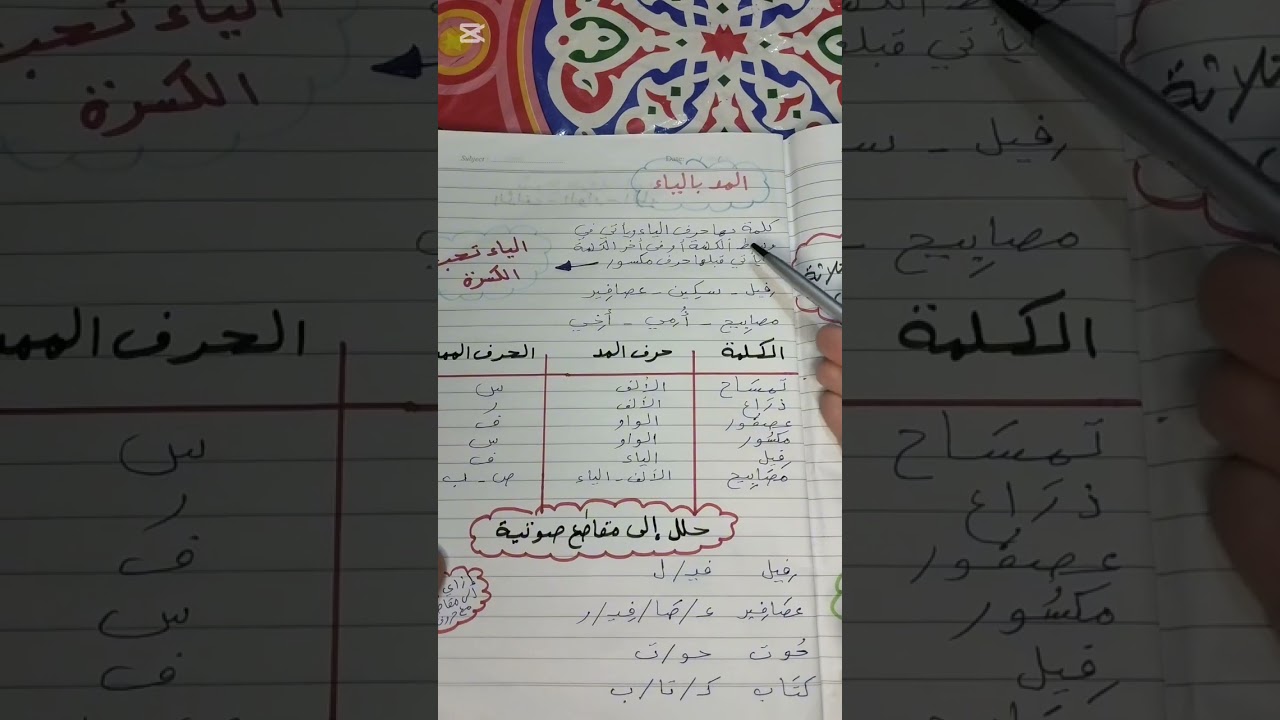 Subject:
Date:
المد بالياء
كلمة بها حرف الياء ويأتي في
وسط الكلمة أو في آخر الكلمة
يأتي قبلها حرف مكسور
الياء تحب
الكسرة
فِيل - سكِين - عصافِير
مصابِيح - أُمِي - أَخِي
الكلمة حرف المد الحرف المم
تمسَاح الألف س
ذرَاع الألف ر
عصفُور الواو ف
مكسُور الواو س
فِيل الياء ف
مصَابِيح الألف - الياء ص - ب
حلل إلى مقاطع صوتية
فِيل فيـ/ل
عصَافِير عـ/صَا/فِيـ/ر
حُوت حو/ت
كتَاب كـ/تا/ب